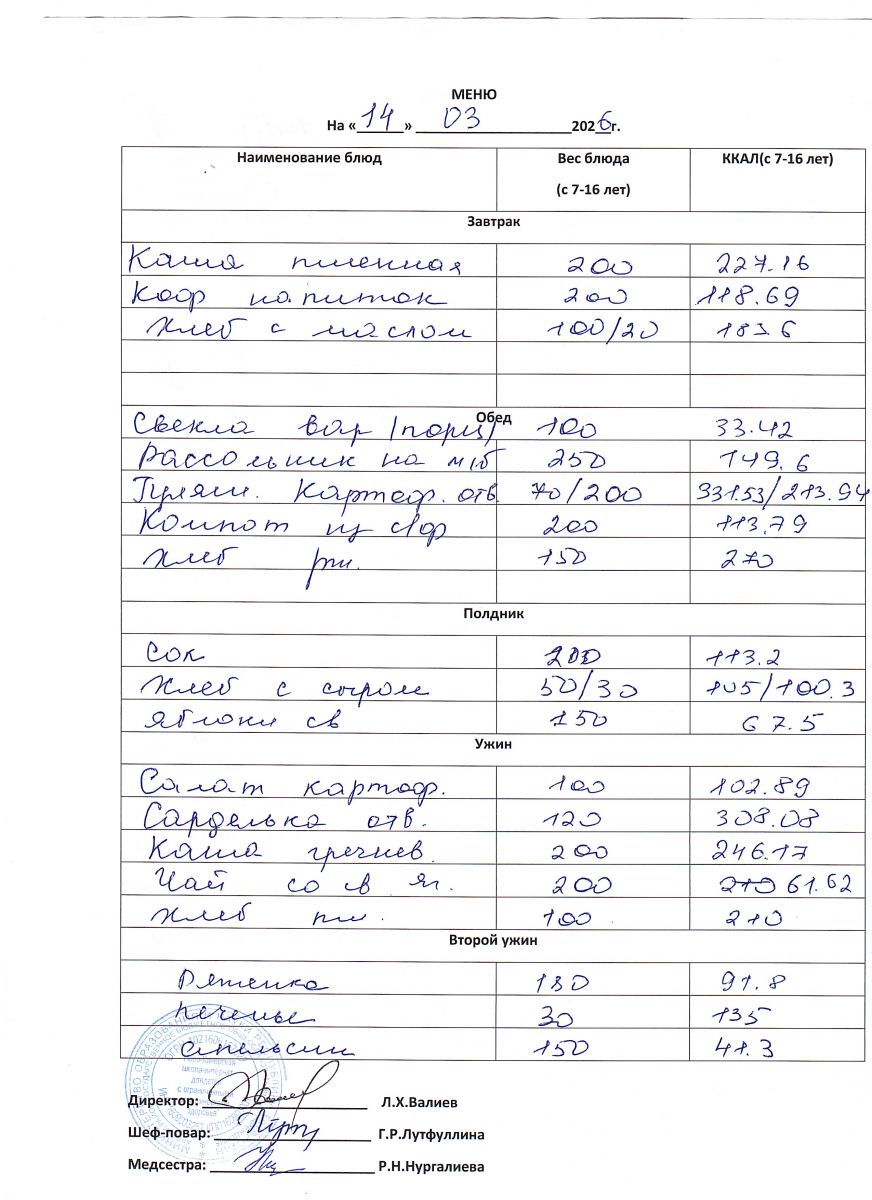 МЕНЮ
На «14» 03 2026г.
Наименование блюд Вес блюда (с 7-16 лет) ККАЛ(с 7-16 лет)
Завтрак
Каша пшенная 200 227.16
Коф напиток 200 118.69
Хлеб с маслом 100/20 183.6
Обед
Свекла вар /порц/ 100 33.42
Рассольник на м/б 250 149.6
Гуляш. Картоф. отв. 70/200 331.53/213.94
Компот из с/ф 200 113.79
Хлеб рж. 150 270
Полдник
Сок 200 113.2
Хлеб с сыром 50/30 105/100.3
Яблоки св 150 67.5
Ужин
Салат картоф. 100 102.89
Сарделька отв. 120 308.08
Каша гречнев. 200 246.17
Чай со св яг. 200 210 61.62
Хлеб пш. 100 210
Второй ужин
Ряженка 180 91.8
Печенье 30 135
Апельсин 150 41.3
школа-интернат
для детей
с ограниченными
здоровья
Директор: Л.Х.Валиев
Шеф-повар: Г.Р.Лутфуллина
Медсестра: Р.Н.Нургалиева